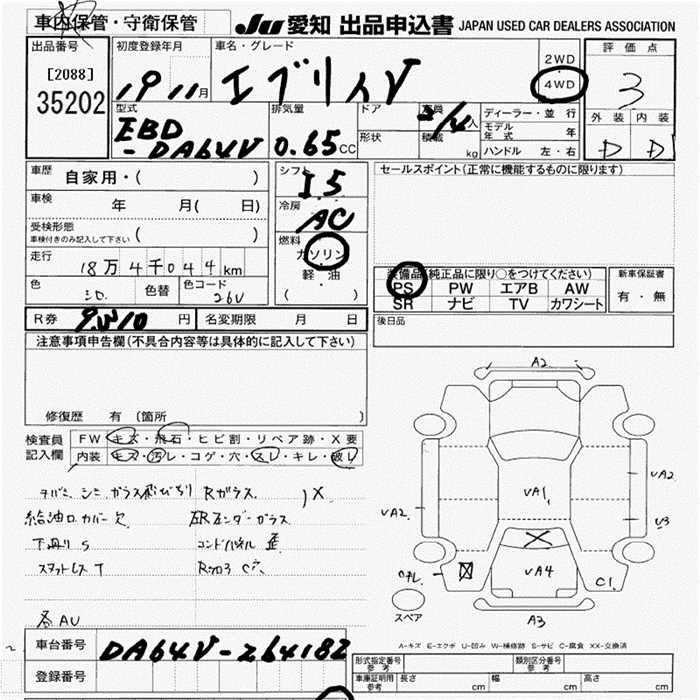 車内保管・守衛保管
JU 愛知 出品申込書 JAPAN USED CAR DEALERS ASSOCIATION
出品番号
[2088]
35202
初度登録年月
19 11月
車名・グレード
エブリイV
2WD
4WD
評価点
3
外装 内装
D D
型式
EBD
-DA64V
排気量
0.65CC
ドア
形状
定員 2/4人
積載 kg
ディーラー・並行
モデル年式 年
ハンドル 左・右
車歴
自家用・( )
車検
年 月( 日)
受検形態
車検付きのみ記入して下さい ( )
走行
18万4千044km
色
シロ
色替
色コード
26V
シフト
I5
冷房
AC
燃料
ガソリン
軽・油
( )
セールスポイント(正常に機能するものに限ります)
装備品(純正品に限り○をつけてください)
PS PW エアB AW
SR ナビ TV カワシート
新車保証書
有・無
R券
円
名変期限 月 日
後日品
注意事項申告欄(不具合内容等は具体的に記入して下さい)
修復歴 有 (箇所 )
検査員
記入欄
FW キズ・飛石・ヒビ割・リペア跡・X要
内装 キズ・汚レ・コゲ・穴・スレ・キレ・破レ
ガラス Rガラス X
給油口カバー欠
下廻りS
スタットレスT
各AU
A2
UA2
UA1
UA2
U3
UA4
C1
A3
スペア
A-キズ E-エクボ U-凹み W-補修跡 S-サビ C-腐食 XX-交換済
車台番号
DA64V-264182
登録番号
形式指定番号 参考
類別区分番号 参考
車庫証明用 参考
長さ cm
幅 cm
高さ cm